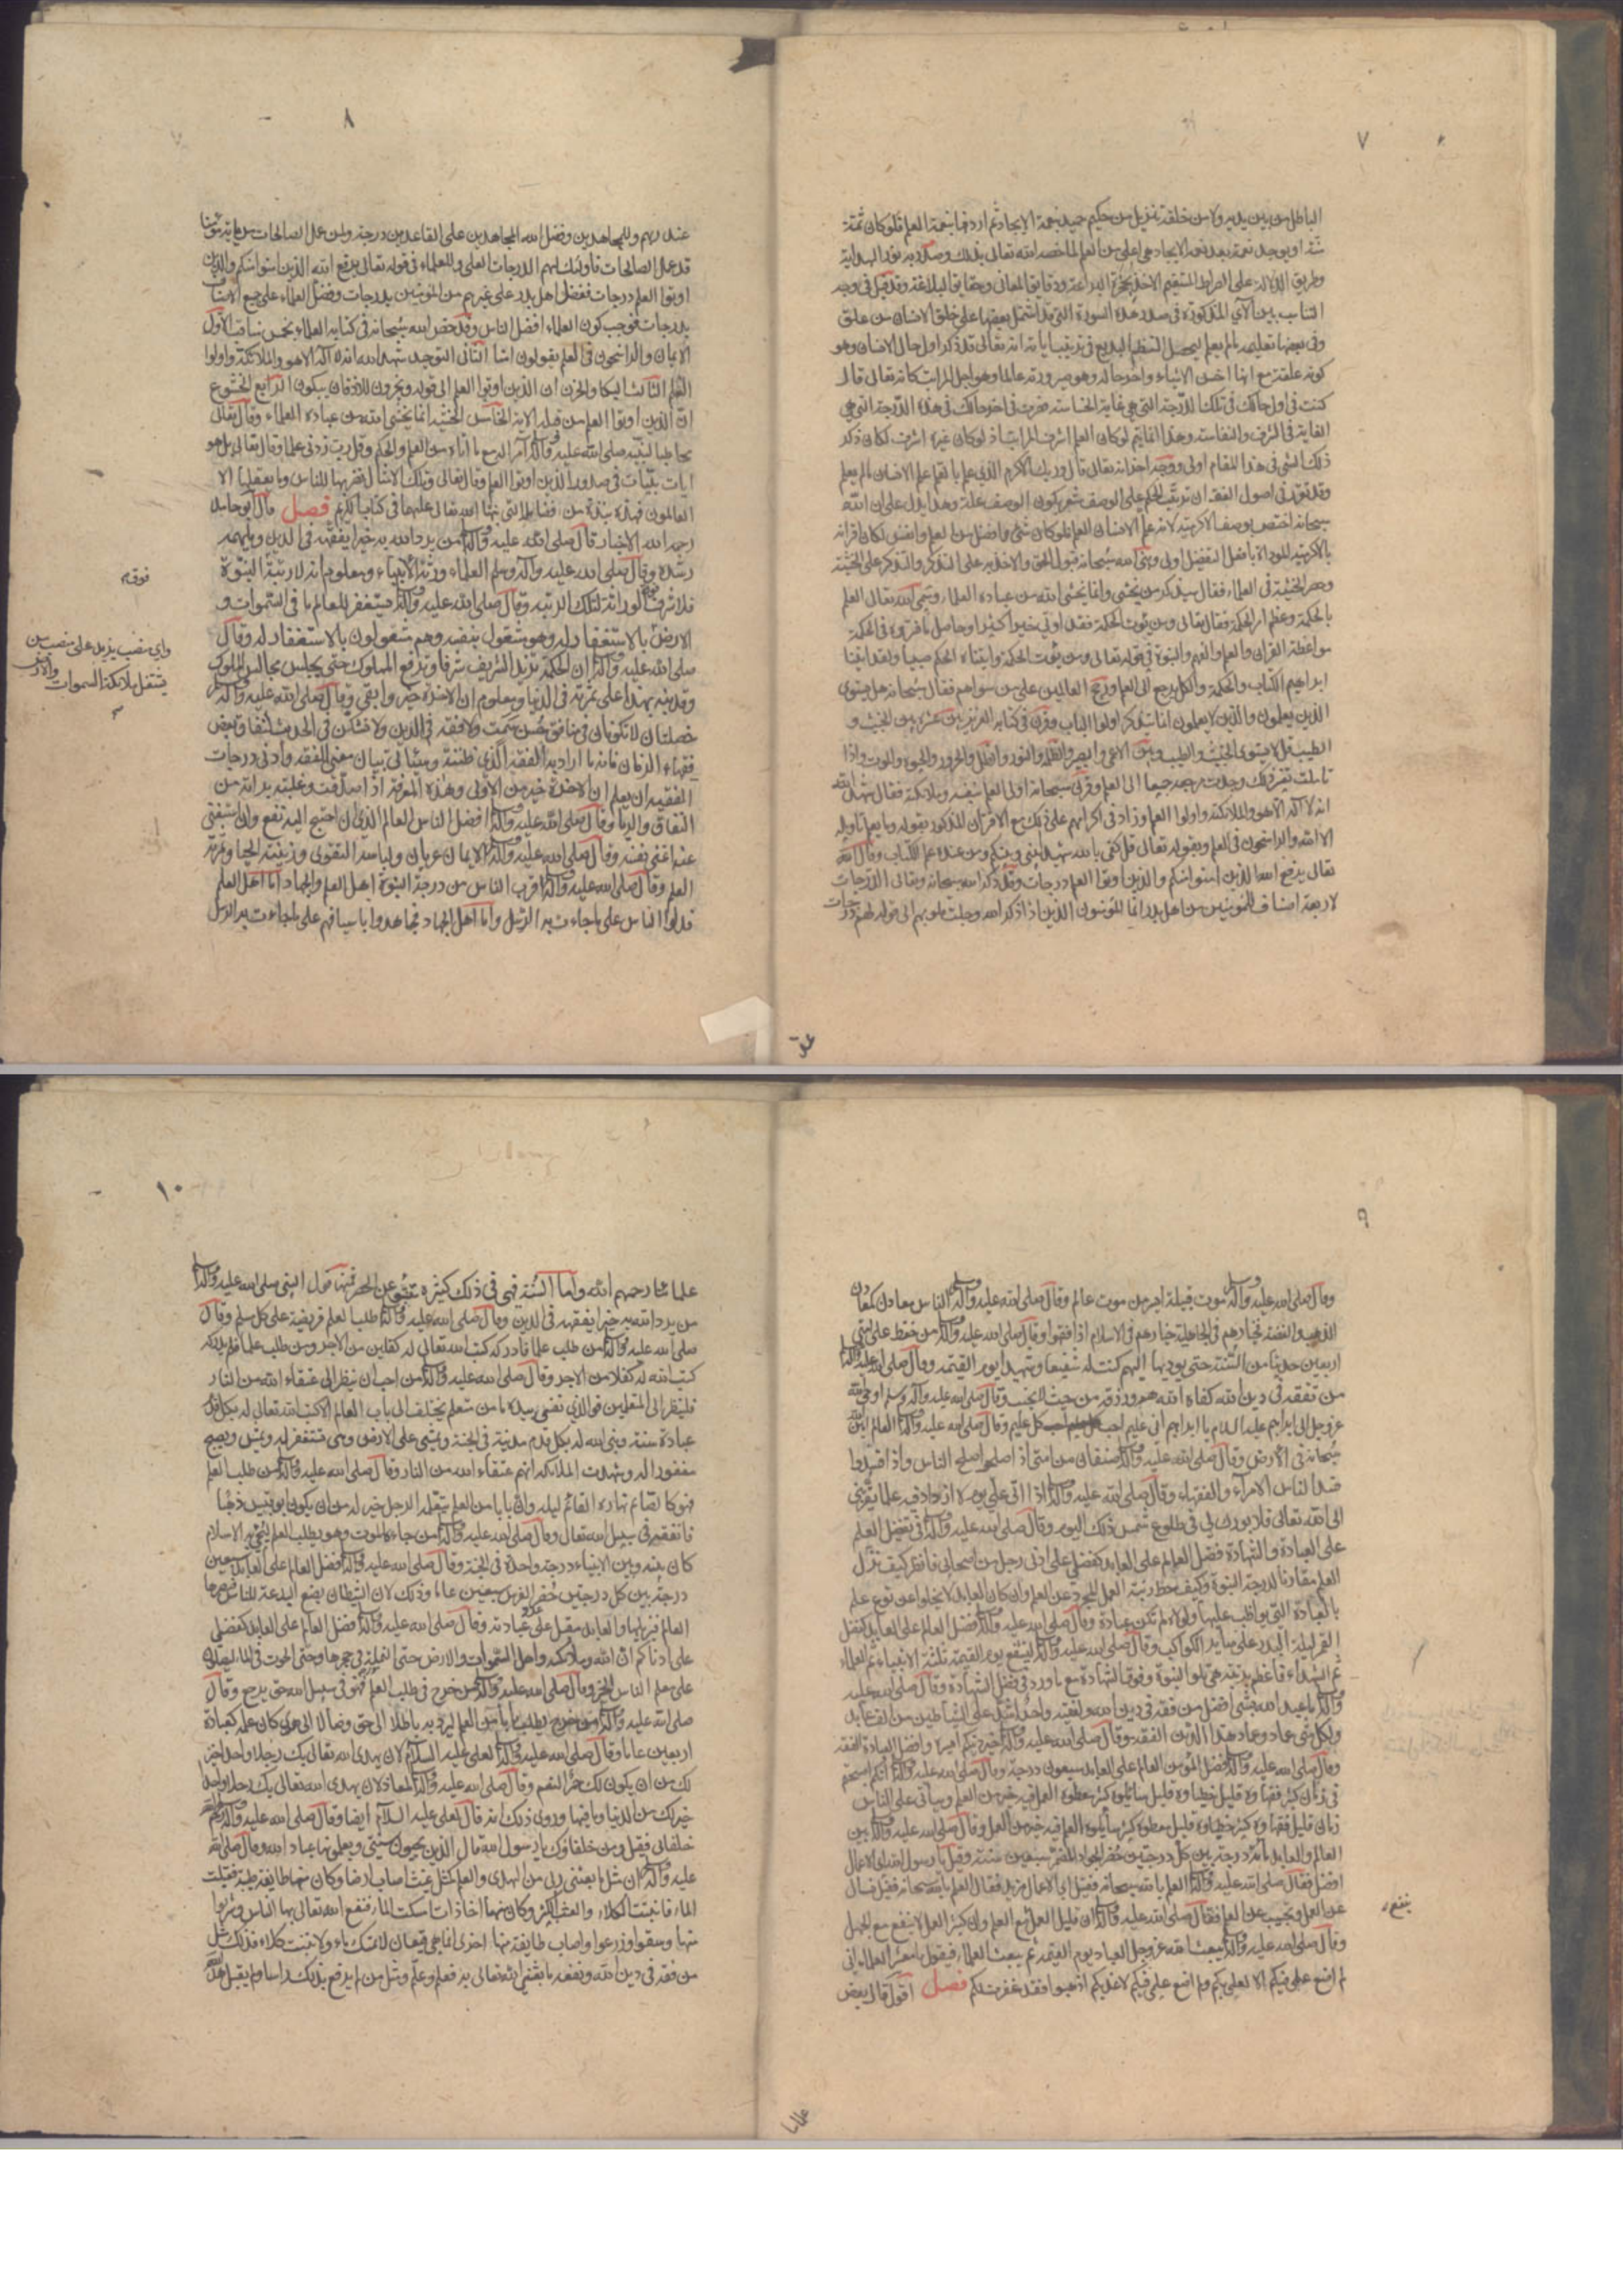 ٧
الباطل من بين يديه ولا من خلفه تنزيل من حكيم حميد نعمة الايجاد ثم اردفها بنعمة العلم فلو كان ثمة
او يوجد نعمة بعد نعمة الايجاد هي اعلى من العلم لما خصه الله تعالى بذلك وصدر به نور الهداية
وطريق الدلالة على الصراط المستقيم الاخذ بحجزة البراعة ودقايق المعاني وحقايق البلاغة وقد قيل في وجه
التناسب بين الآي المذكورة في صدر هذه السورة التي قد اشتمل بعضها على خلق الانسان من علق
وفي بعضها تعليمه ما لم يعلم ليحصل النظم البديع في ترتيب اياته انه تعالى قد ذكر اول حال الانسان وهو
كونه علقة مع انها اخس الاشياء واخر حاله وهو صيرورته عالما وهو اجل المراتب كانه تعالى قال
كنت في اول حالك في تلك الدرجة التي هي غاية الخساسة فصرت في اخر حالك في هذه الدرجة التي هي
الغاية في الشرف والنفاسة وهذا انما يتم لو كان العلم اشرف المراتب اذ لو كان غيره اشرف لكان ذكر
ذلك الشي في هذا المقام اولى ووجه اخر انه تعالى قال وربك الاكرم الذي علم بالقلم علم الانسان ما لم يعلم
وقد تقرر في اصول الفقه ان ترتب الحكم على الوصف مشعر بكون الوصف علة وهذا يدل على ان الله
سبحانه اختص بوصف الاكرمية لانه علم الانسان العلم فلو كان شئ افضل من العلم وانفس لكان اقترانه
بالاكرمية المؤداة بافعل التفضيل اولى وبنى الله سبحانه قبول الحق والاخذ به على التذكر والتذكر على الخشية
وحصر الخشية في العلماء فقال سيذكر من يخشى وانما يخشى الله من عباده العلماء وسمى الله تعالى العلم
بالحكمة وعظم امر الحكمة فقال تعالى ومن يؤت الحكمة فقد اوتي خيرا كثيرا وحاصل ما فسروه في الحكمة
مواعظ القران والعلم والفهم والنبوة في قوله تعالى ومن يؤت الحكمة واتيناه الحكم صبيا ولقد اتينا
ابراهيم الكتاب والحكمة والكل يرجع الى العلم ورجح العالمين على من سواهم فقال سبحانه هل يستوي
الذين يعلمون والذين لا يعلمون انما يتذكر اولوا الالباب وقرن في كتابه العزيز بين عشرة بين الخبيث و
الطيب قل لا يستوي الخبيث والطيب وبين الاعمى والبصير والظلمة والنور والظل والحرور والحيوة والموت واذا
تاملت تفسير ذلك وجدت مرجعه جميعا الى العلم وقرن سبحانه اولي العلم بنفسه وملائكته فقال شهد الله
انه لا اله الا هو والملائكة واولوا العلم وزاد في اكرامهم على ذلك مع الاقتران المذكور بقوله وما يعلم تاويله
الا الله والراسخون في العلم وبقوله تعالى قل كفى بالله شهيدا بيني وبينكم ومن عنده علم الكتاب وقال الله
تعالى يرفع الله الذين امنوا منكم والذين اوتوا العلم درجات وقد ذكر الله سبحانه وتعالى الدرجات
لاربعة اصناف للمؤمنين من اهل بدر انما المؤمنون الذين اذا ذكر الله وجلت قلوبهم الى قوله لهم درجات
عند
٨
عند ربهم وللمجاهدين وفضل الله المجاهدين على القاعدين درجة ولمن عمل الصالحات من ياته مؤمنا
قد عمل الصالحات فاولئك لهم الدرجات العلى وللعلماء في قوله تعالى يرفع الله الذين امنوا منكم والذين
اوتوا العلم درجات ففضل اهل بدر على غيرهم من المؤمنين بدرجات وفضل العلماء على جميع الاصناف
بدرجات فوجب كون العلماء افضل الناس وقد خص الله سبحانه في كتابه العلماء بخمس مناقب الاول
الايمان والراسخون في العلم يقولون امنا الثاني التوحيد شهد الله انه لا اله الا هو والملائكة واولوا
العلم الثالث البكا والحزن ان الذين اوتوا العلم الى قوله ويخرون للاذقان يبكون الرابع الخشوع
ان الذين اوتوا العلم من قبله الاية الخامس الخشية انما يخشى الله من عباده العلماء وقال تعالى
مخاطبا لنبيه صلى الله عليه وآله آمرا له مع ما اتاه من العلم والحكم وقل رب زدني علما وقال تعالى بل هو
ايات بينات في صدور الذين اوتوا العلم وقال تعالى وتلك الامثال نضربها للناس وما يعقلها الا
العالمون فهذه نبذة من فضايله التي نبهنا الله تعالى عليها في كتابه الكريم فصل قال ابو حامد
رحمه الله الاخبار قال صلى الله عليه وآله من يرد الله به خيرا يفقهه في الدين ويلهمه
رشده وقال صلى الله عليه وآله وسلم العلماء ورثة الانبياء ومعلوم انه لا رتبة النبوة
فلا شرف الوراثة لتلك الرتبة وقال صلى الله عليه وآله يستغفر للعالم ما في السموات و
الارض بالاستغفار له وهو مشغول بنفسه وهم مشغولون بالاستغفار له وقال
صلى الله عليه وآله ان الحكمة تزيد الشريف شرفا وترفع المملوك حتى يجلس مجالس الملوك
وقد نبه بهذا على ثمرته في الدنيا ومعلوم ان الاخرة خير وابقى وقال صلى الله عليه وآله
خصلتان لا تكونان في منافق حسن سمت ولا فقه في الدين ولا تشكن في الحديث لنفاق بعض
فقهاء الزمان فانه ما اراد به الفقه الذي ظننته وسياتي بيان معنى الفقه وادنى درجات
الفقيه ان يعلم ان الاخرة خير من الاولى وهذه المعرفة اذا صدقت وغلبت برئ من
النفاق والريا وقال صلى الله عليه وآله افضل الناس العالم الذي ان احتيج اليه نفع وان استغنى
عنه اغنى نفسه وقال صلى الله عليه وآله الايمان عريان ولباسه التقوى وزينته الحيا وثمرته
العلم وقال صلى الله عليه وآله اقرب الناس من درجة النبوة اهل العلم والجهاد اما اهل العلم
فدلوا الناس على ما جاءت به الرسل واما اهل الجهاد فجاهدوا باسيافهم على ما جاءت به الرسل
فوقه
واي منصب يزيد على منصب من
يشتغل ملائكة السموات والارض
٩
وقال صلى الله عليه وآله موت قبيلة ايسر من موت عالم وقال صلى الله عليه وآله الناس معادن كمعادن
الذهب والفضة فخيارهم في الجاهلية خيارهم في الاسلام اذا فقهوا وقال صلى الله عليه وآله من حفظ على امتي
اربعين حديثا من السنة حتى يوديها اليهم كنت له شفيعا وشهيدا يوم القيمة وقال صلى الله عليه وآله
من تفقه في دين الله كفاه الله همه ورزقه من حيث لا يحتسب وقال صلى الله عليه وآله وسلم اوحى الله
عز وجل الى ابراهيم عليه السلام يا ابراهيم اني عليم احب كل عليم وقال صلى الله عليه وآله العالم امين الله
سبحانه في الارض وقال صلى الله عليه وآله صنفان من امتي اذا صلحوا صلح الناس واذا فسدوا
فسد الناس الامراء والفقهاء وقال صلى الله عليه وآله اذا اتى علي يوم لا ازداد فيه علما يقربني
الى الله تعالى فلا بورك لي في طلوع شمس ذلك اليوم وقال صلى الله عليه وآله في تفضيل العلم
على العبادة والشهادة فضل العالم على العابد كفضلي على ادنى رجل من اصحابي فانظر كيف نزل
العلم مقارنا لدرجة النبوة وكيف حط رتبة العمل المجرد عن العلم وان كان العابد لا يخلوا عن نوع علم
بالعبادة التي يواظب عليها ولولاه لم تكن عبادة وقال صلى الله عليه وآله فضل العالم على العابد كفضل
القمر ليلة البدر على ساير الكواكب وقال صلى الله عليه وآله يشفع يوم القيمة ثلثة الانبياء ثم العلماء
ثم الشهداء فاعظم بمرتبة هي تلو النبوة وفوق الشهادة مع ما ورد في فضل الشهادة وقال صلى الله عليه
وآله ما عبد الله بشئ افضل من فقه في دين الله ولفقيه واحد اشد على الشياطين من الف عابد
ولكل شئ عماد وعماد هذا الدين الفقه وقال صلى الله عليه وآله خير دينكم ايسره وافضل العبادة الفقه
وقال صلى الله عليه وآله فضل المؤمن العالم على العابد سبعون درجة وقال صلى الله عليه وآله انكم اصبحتم
في زمان كثير فقهاؤه قليل خطباؤه قليل سائلوه كثير معطوه العمل فيه خير من العلم وسياتي على الناس
زمان قليل فقهاؤه كثير خطباؤه قليل معطوه كثير سائلوه العلم فيه خير من العمل وقال صلى الله عليه وآله بين
العالم والعابد مائة درجة بين كل درجتين حضر الجواد المضمر سبعين سنة وقيل يا رسول الله اي الاعمال
افضل فقال صلى الله عليه وآله العلم بالله سبحانه فقيل اي الاعمال نريد فقال العلم بالله سبحانه فقيل نسال
عن العمل وتجيب عن العلم فقال صلى الله عليه وآله ان قليل العمل مع العلم وان كثير العمل لا ينفع مع الجهل
وقال صلى الله عليه وآله يبعث الله عز وجل العباد يوم القيمة ثم يبعث العلماء فيقول يا معشر العلماء اني
لم اضع علمي فيكم الا لعلمي بكم ولم اضع علمي فيكم لاعذبكم اذهبوا فقد غفرت لكم فصل اقول قال بعض
ينفع
علمائنا
١٠
علمائنا رحمهم الله واما السنة فهي في ذلك كثيرة تنبو عن الحصر فمنها قول النبي صلى الله عليه وآله
من يرد الله به خيرا يفقهه في الدين وقال صلى الله عليه وآله طلب العلم فريضة على كل مسلم وقال
صلى الله عليه وآله من طلب علما فادركه كتب الله تعالى له كفلين من الاجر ومن طلب علما فلم يدركه
كتب الله له كفلا من الاجر وقال صلى الله عليه وآله من احب ان ينظر الى عتقاء الله من النار
فلينظر الى المتعلمين فوالذي نفسي بيده ما من متعلم يختلف الى باب العالم الا كتب الله تعالى له بكل قدم
عبادة سنة وبنى الله له بكل قدم مدينة في الجنة ويمشي على الارض وهي تستغفر له ويمسي ويصبح
مغفورا له وشهدت الملائكة انهم عتقاء الله من النار وقال صلى الله عليه وآله من طلب العلم
فهو كالصائم نهاره القائم ليله وان بابا من العلم يتعلمه الرجل خير له من ان يكون ابو قبيس ذهبا
فانفقه في سبيل الله تعالى وقال صلى الله عليه وآله من جاءه الموت وهو يطلب العلم ليحيي به الاسلام
كان بينه وبين الانبياء درجة واحدة في الجنة وقال صلى الله عليه وآله فضل العالم على العابد سبعين
درجة بين كل درجتين حضر الفرس سبعين عاما وذلك لان الشيطان يضع البدعة للناس فيبصرها
العالم فيزيلها والعابد يقبل على عبادته وقال صلى الله عليه وآله فضل العالم على العابد كفضلي
على ادناكم ان الله وملائكته واهل السموات والارض حتى النملة في جحرها وحتى الحوت في الماء ليصلون
على معلم الناس الخير وقال صلى الله عليه وآله من خرج في طلب العلم فهو في سبيل الله حتى يرجع وقال
صلى الله عليه وآله من خرج يطلب بابا من العلم ليرد به باطلا الى حق وضالا الى هدى كان عمله كعبادة
اربعين عاما وقال صلى الله عليه وآله لعلي عليه السلام لان يهدي الله تعالى بك رجلا واحدا خير
لك من ان يكون لك حمر النعم وقال صلى الله عليه وآله لمعاذ لان يهدي الله تعالى بك رجلا واحدا
خير لك من الدنيا وما فيها وروي ذلك انه قال لعلي عليه السلام ايضا وقال صلى الله عليه وآله رحم الله
خلفائي فقيل ومن خلفاؤك يا رسول الله قال الذين يحيون سنتي ويعلمونها عباد الله وقال صلى الله
عليه وآله ان مثل ما بعثني ربي من الهدى والعلم كمثل غيث اصاب ارضا وكان منها طايفة طيبة فقبلت
الماء فانبتت الكلاء والعشب الكثير وكان منها اخاذات امسكت الماء فنفع الله تعالى بها الناس وشربوا
منها وسقوا وزرعوا واصاب طايفة منها اخرى انما هي قيعان لا تمسك ماء ولا تنبت كلاء فذلك مثل
من فقه في دين الله ونفعه ما بعثني الله تعالى به فعلم وعلم ومثل من لم يرفع بذلك راسا ولم يقبل هدى الله